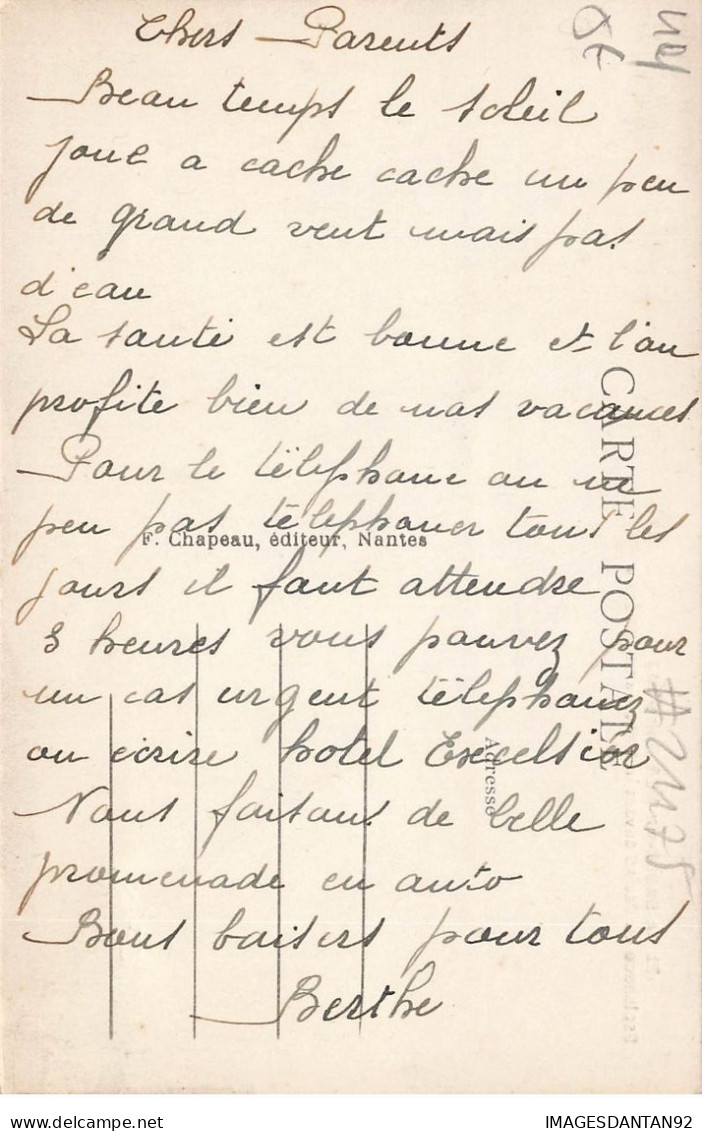 Chers Parents
Beau temps le soleil
joue a cache cache un peu
de grand vent mais pas
d'eau
La santé est bonne et l'on
profite bien de nos vacances
Pour le téléphone on ne
peu pas téléphoner tous les
jours il faut attendre
3 heures vous pouvez pour
un cas urgent téléphonez
ou écrire hotel Excelsior
Nous faisons de belle
promenade en auto
Bons baisers pour tous
Berthe
F. Chapeau, éditeur, Nantes
CARTE POSTALE
Adresse
44
5€
IMAGESDANTAN92